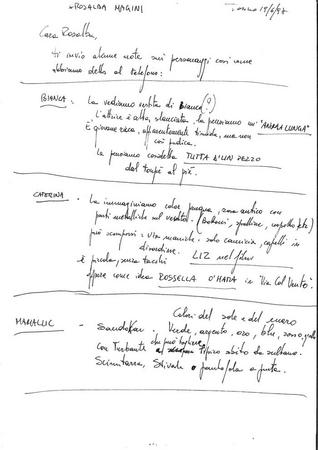 ROSALBA MAGINI
Torino 19/6/98
Cara Rosalba,
ti invio alcune note sui personaggi così come
abbiamo detto al telefono:
BIANCA: La vediamo vestita di bianco (?)
L'attrice è alta, slanciata, la pensiamo un' "ANIMA LUNGA"
È giovane ricca, apparentemente timida, ma non
così pudica.
La pensiamo cosiddetta TUTTA D'UN PEZZO
dal toupé al piè.
CATERINA - La immaginiamo color porpora, rosa antico con
parti metalliche sul vestito. (Bottoni, spalline, cappotto etc)
può scomporsi: via maniche - solo camicia, capelli in
disordine. LIZ nel film
È piccola, senza tacchi
oppure come idea ROSSELLA O'HARA in "Via Col Vento".
MAMALUC - Colori del sole e del mare
Sandokan - Verde, argento, oro, blu, rosso, giallo
con Turbante che può togliere, tipico abito da sultano.
Scimitarra, Stivali o pantofola a punta.